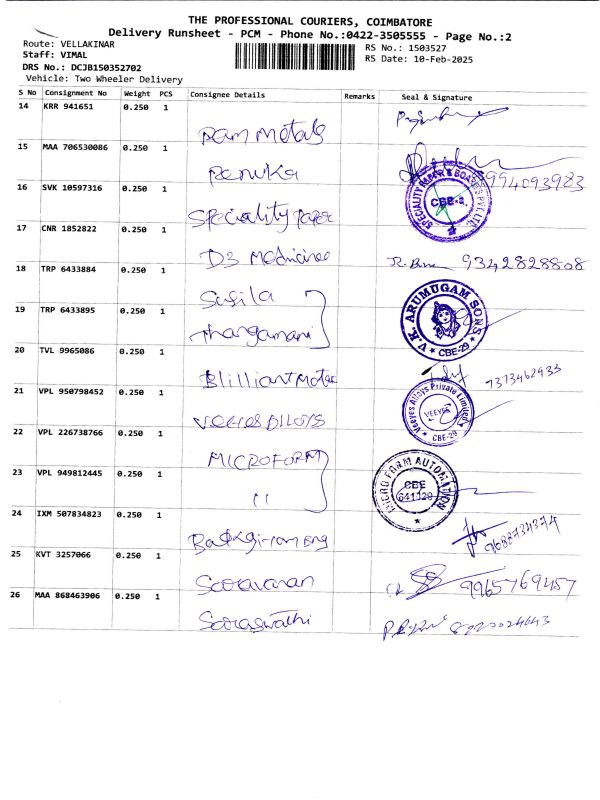 THE PROFESSIONAL COURIERS, COIMBATORE
Delivery Runsheet - PCM - Phone No.:0422-3505555 - Page No.:2
Route: VELLAKINAR RS No.: 1503527
Staff: VIMAL RS Date: 10-Feb-2025
DRS No.: DCJB150352702
Vehicle: Two Wheeler Delivery
S No Consignment No Weight PCS Consignee Details Remarks Seal & Signature
14 KRR 941651 0.250 1 Ram Metals
15 MAA 706530086 0.250 1 Renuka 9994093983
16 SVK 10597316 0.250 1 Speciality Paper SPECIALITY PAPER & BOARDS PVT. LTD. CBE-
17 CNR 1852822 0.250 1 D3 Medicines 9342828808
18 TRP 6433884 0.250 1 Susila
19 TRP 6433895 0.250 1 Thangamani V.K. ARUMUGAM SONS CBE-29
20 TVL 9965086 0.250 1 Blilliant Motor 7373462933
21 VPL 950798452 0.250 1 Veeyes Alloys Private Limited VEEYES CBE-29
22 VPL 226738766 0.250 1 MICROFORM
23 VPL 949812445 0.250 1 " MICRO FORM AUTOMATION CBE 641029
24 IXM 507834823 0.250 1 Eng 9688734374
25 KVT 3257066 0.250 1 Saravanan 9965769457
26 MAA 868463906 0.250 1 Saraswathi